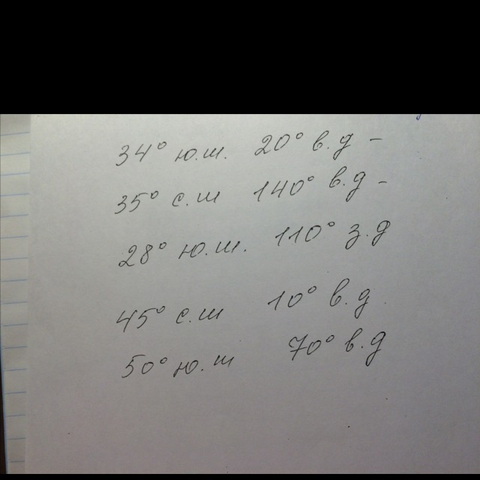 34° ю.ш. 20° в.д –
35° с.ш 140° в.д –
28° ю.ш. 110° з.д
45° с.ш 10° в.д.
50° ю.ш 70° в.д